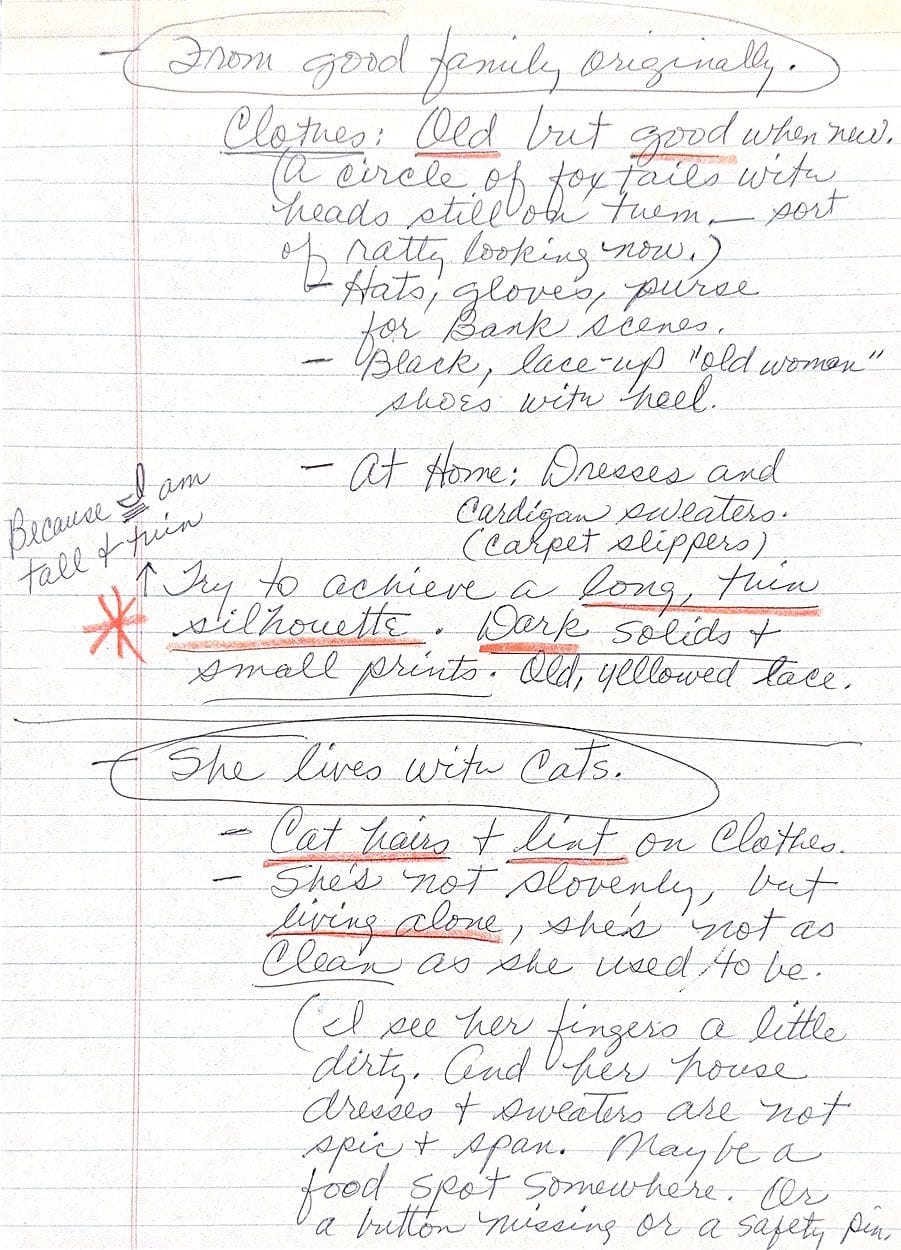 - From good family originally.
Clothes: Old but good when new.
(A circle of fox tails with
heads still on them — sort
of ratty looking now.)
- Hats, gloves, purse
for Bank scenes.
- Black, lace-up "old woman"
shoes with heel.
- At Home: Dresses and
Cardigan sweaters.
(carpet slippers)
Because I am
tall & thin
↑ Try to achieve a long, thin
* silhouette. Dark solids &
small prints. Old, yellowed lace.
- She lives with Cats.
- Cat hairs & lint on Clothes.
- She's not slovenly, but
living alone, she's not as
Clean as she used to be.
(I see her fingers a little
dirty. And her house
dresses & sweaters are not
spic & span. Maybe a
food spot somewhere. Or
a button missing or a safety pin.